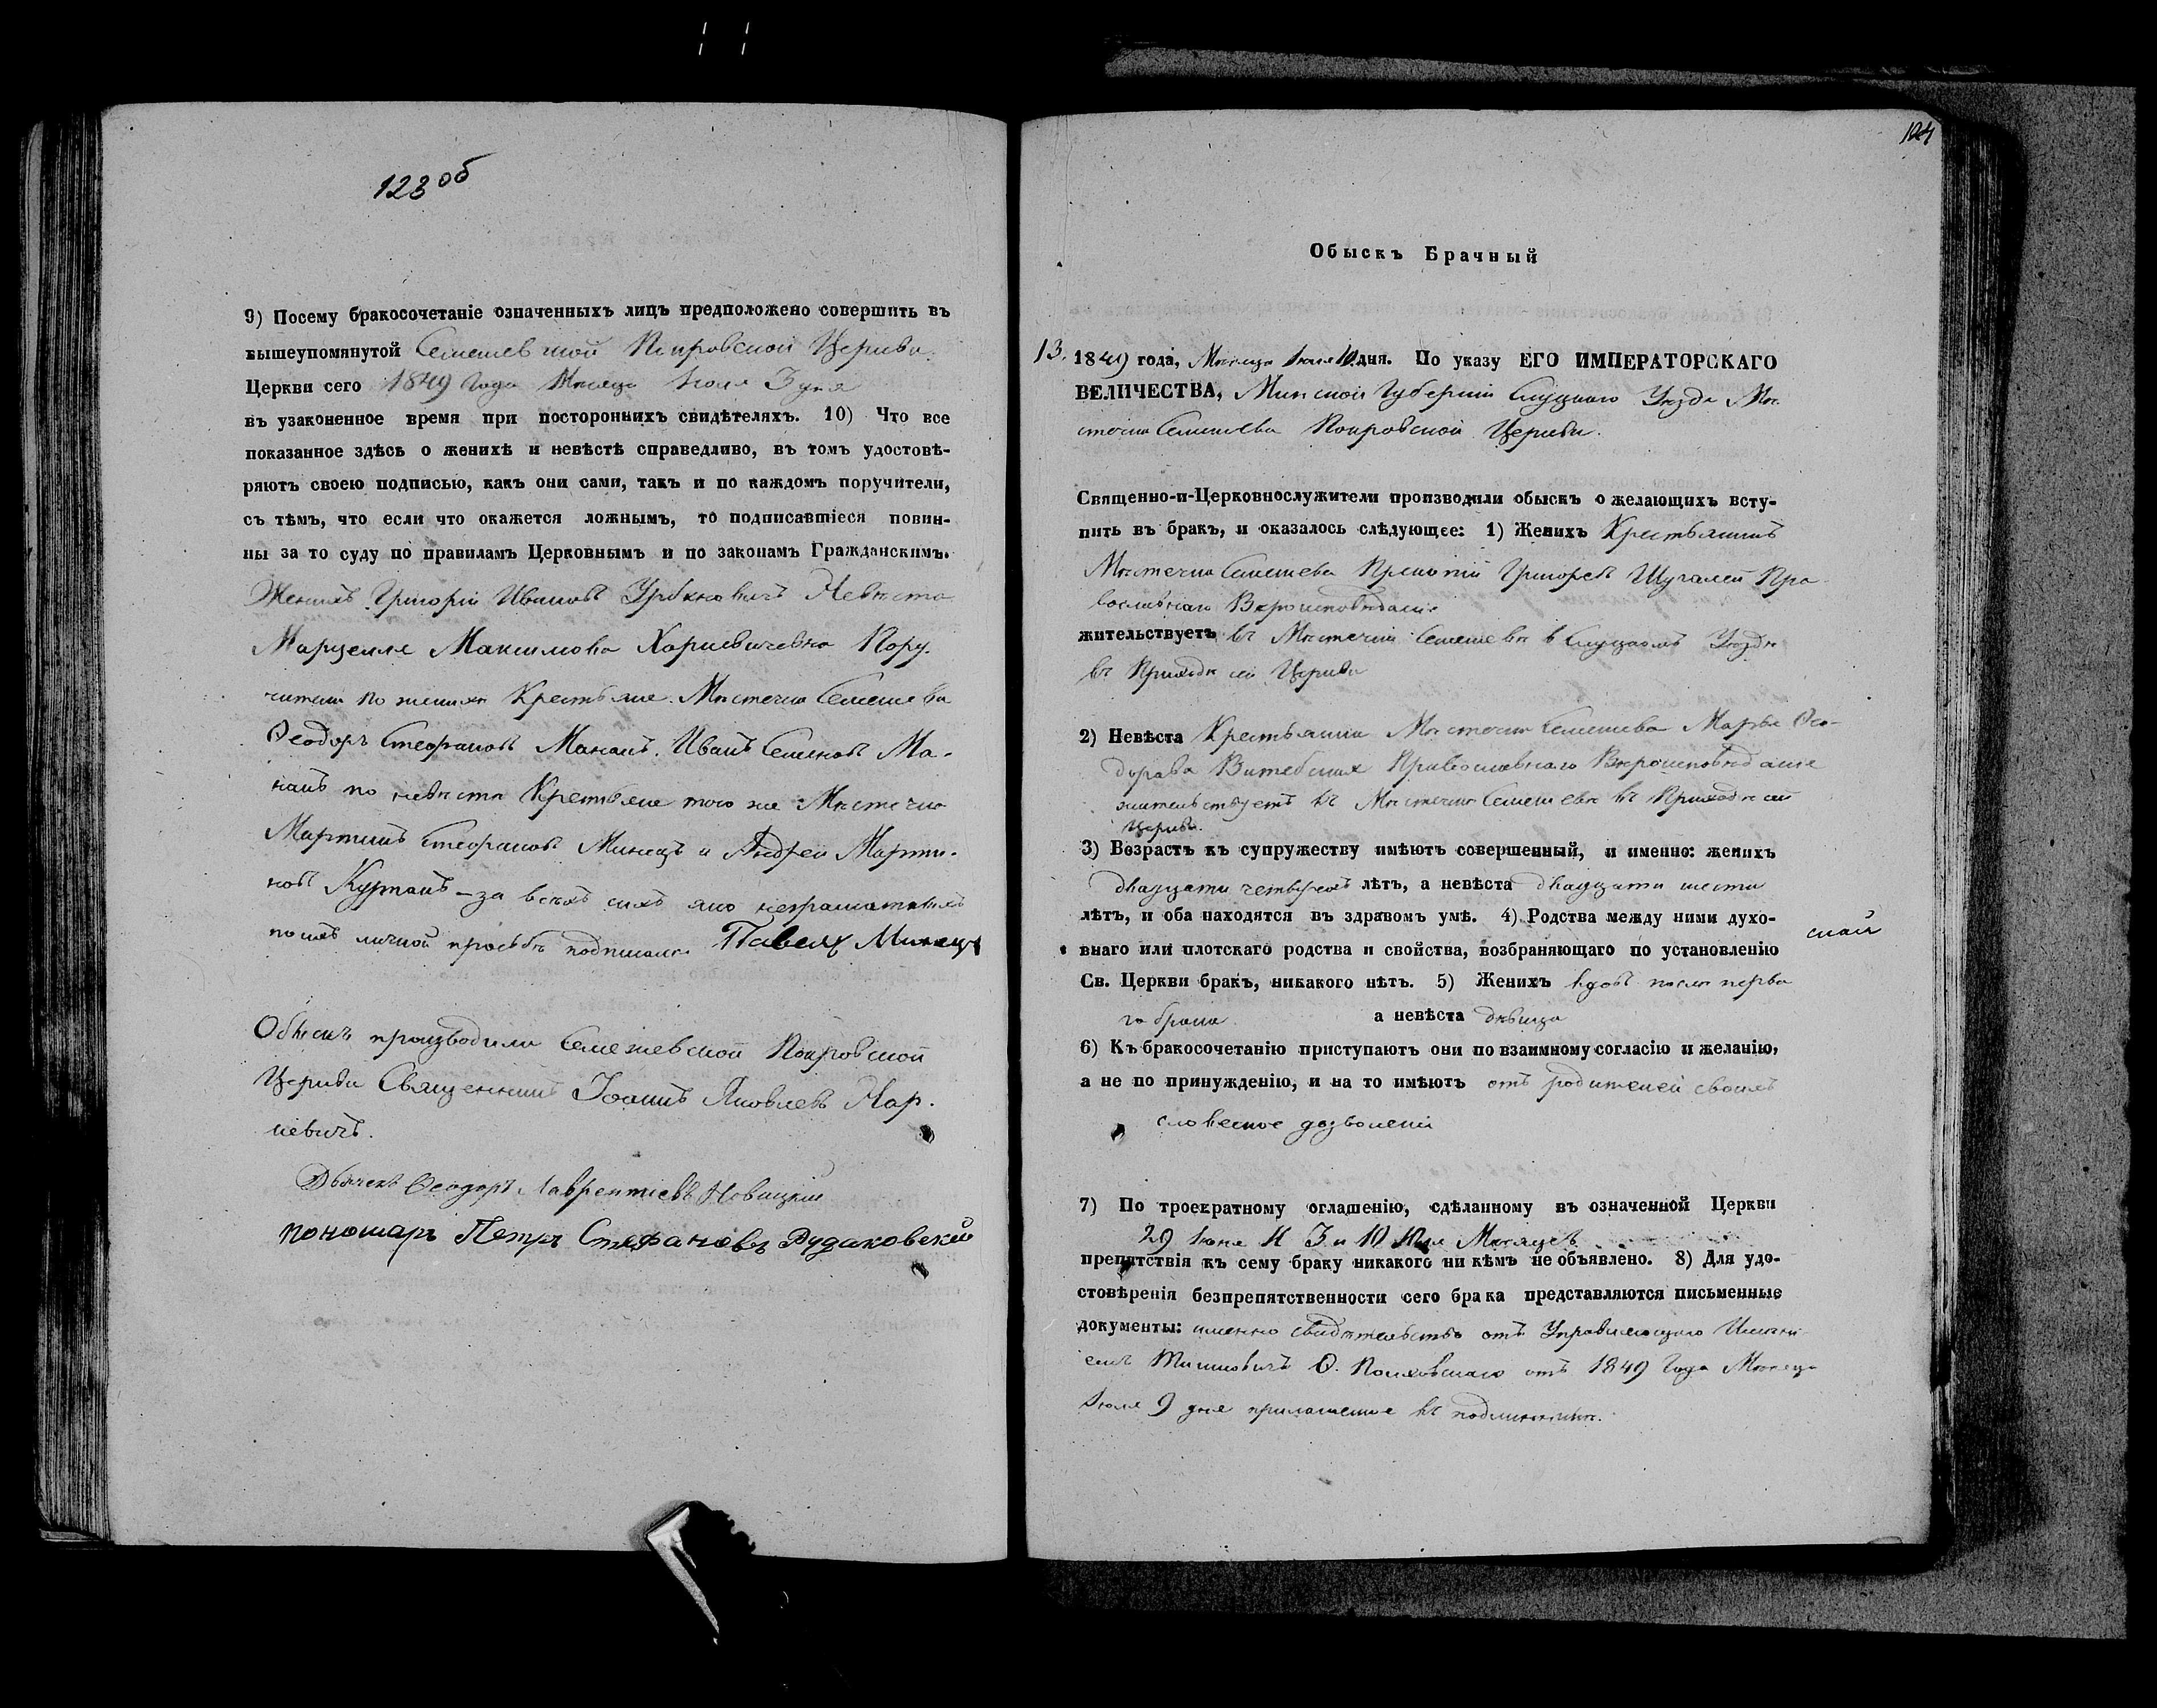 123 об
9) Посему бракосочетаніе означенныхъ лицъ предположено совершить въ
вышеупомянутой Семежевской Покровской Церкви
Церкви сего 1849 года Месяца Іюля 3 дня
въ узаконенное время при постороннихъ свидѣтеляхъ. 10) Что все
показанное здѣсь о женихѣ и невѣстѣ справедливо, въ томъ удостовѣ-
ряютъ своею подписью, какъ они сами, такъ и по каждомъ поручители,
съ тѣмъ, что если что окажется ложнымъ, то подписавшіеся повин-
ны за то суду по правиламъ Церковнымъ и по законамъ Гражданскимъ.
Женихъ Григорій Ивановъ Урбановичъ Невѣста
Марцелля Максимова Харкевичевна Пору-
чители по женихѣ Крестьяне Мѣстечка Семежева
Ѳеодоръ Стефановъ Манакъ. Иванъ Семеновъ Ма-
накъ по невѣстѣ Крестьяне того же Мѣстечка
Мартинъ Стефановъ Минецъ и Андрей Марти-
новъ Курганъ - за всѣхъ сихъ яко неграматныхъ
по ихъ личной просьбѣ подписался Павелъ Минецъ
Обыскъ производили Семежевской Покровской
Церкви Священникъ Іоаннъ Яковлевъ Нар-
кевичъ.
Дьячекъ Ѳеодоръ Лаврентіевъ Новицкій
пономарь Петръ Стефановъ Рудаковский
124
Обыскъ Брачный
13. 1849 года, Мѣсяца Іюля 10 дня. По указу ЕГО ИМПЕРАТОРСКАГО
ВЕЛИЧЕСТВА, Минской Губерніи Слуцкаго Уѣзда Мѣ-
стечка Семежева Покровской Церкви.
Священно-и-Церковнослужители производили обыскъ о желающихъ всту-
пить въ бракъ, и оказалось слѣдующее: 1) Женихъ Крестьянинъ
Мѣстечка Семежева Григорьевъ Пра-
вославнаго Вѣроисповѣданія
жительствуетъ въ Мѣстечкѣ Семежевѣ в Слуцкомъ Уѣздѣ
въ Приходѣ сей Церкви
2) Невѣста Крестьянка Мѣстечка Семежева Марья Ѳео-
дорова Православнаго Вѣроисповѣданія
жительствуетъ въ Мѣстечкѣ Семежевѣ въ Приходѣ сей
Церкви.
3) Возрастъ къ супружеству имѣютъ совершенный, и именно: женихъ
двадцати четырехъ лѣтъ, а невѣста двадцати шести
лѣтъ, и оба находятся въ здравомъ умѣ. 4) Родства между ними духо-
внаго или плотскаго родства и свойства, возбраняющаго по установленію
Св. Церкви бракъ, никакого нѣтъ. 5) Женихъ вдовъ после перва
го брака а невѣста дѣвица
6) Къ бракосочетанію приступаютъ они по взаимному согласію и желанію,
а не по принужденію, и на то имѣютъ отъ родителей своихъ
словесное дозволеніе
7) По троекратному оглашенію, сдѣланному въ означенной Церкви
29 Іюня И 3 и 10 Іюля Мѣсяцевъ
препятствія къ сему браку никакого ни кѣмъ не объявлено. 8) Для удо-
стовѣренія безпрепятственности сего брака представляются письменные
документы: именно свидѣтельство отъ Управляющаго Имѣні-
емъ отъ 1849 года Мѣсяца
Іюля 9 дня